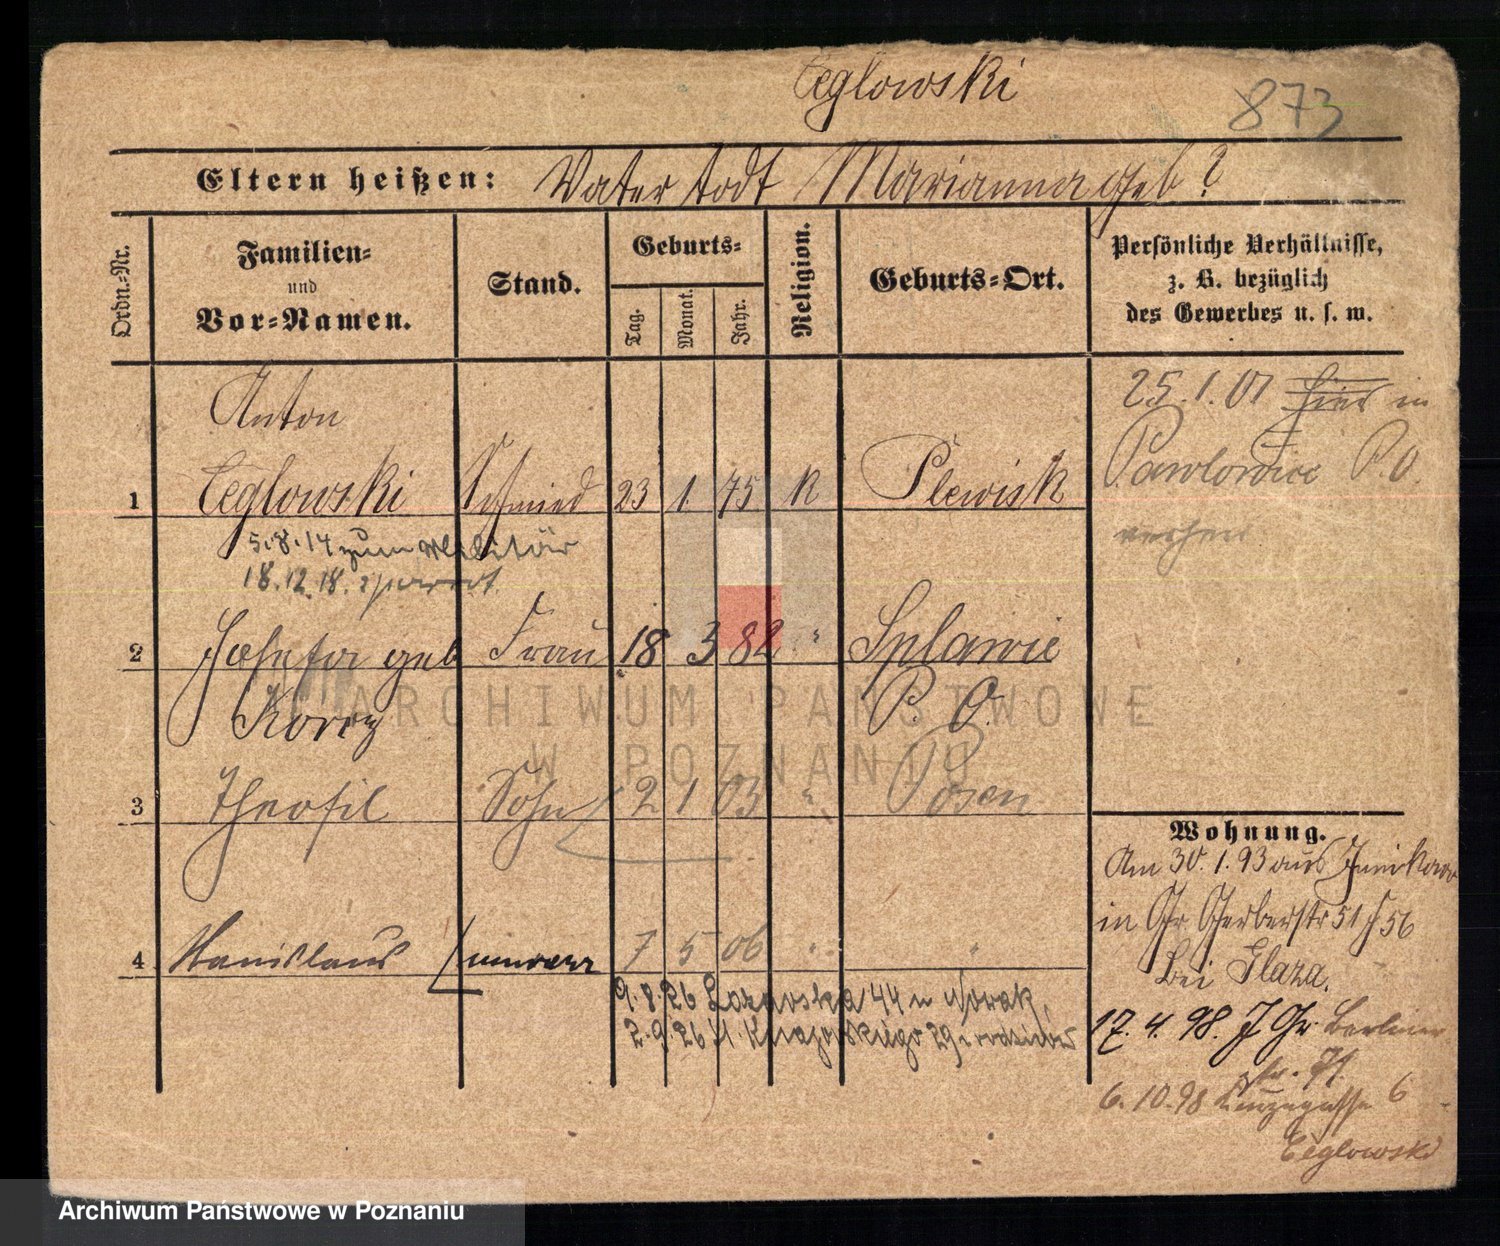 Ceglowski
873
Eltern heißen: Vater todt Marianna geb ?
Ordn.-Nr.
Familien-
und
Vor-Namen.
Stand.
Geburts-
Tag.
Monat.
Jahr.
Religion.
Geburts-Ort.
Persönliche Verhältnisse,
z. B. bezüglich
des Gewerbes u. s. w.
Anton
1 Ceglowski Schmied 23 1. 75 K Plewisk
5.8.14 zum Militär
18.12.18.
25.1.01 hier in
Pawlowice P.O.
2 Josefa geb Frau 18 3 82 " Splawie
P. O.
3 Theofil Sohn 2 1 03 " Posen
4 Stanislaus 7 5 06 " "
9.8.26 44 Nowak
2.9.26 29
ARCHIWUM PAŃSTWOWE
W POZNANIU
Wohnung.
Am 30.1.93 aus Junikowo
in Gr Gerberstr 51 56
bei Glaza.
17.4.98. Gr Berliner
str.
6.10.98 6
Ceglowski
Archiwum Państwowe w Poznaniu